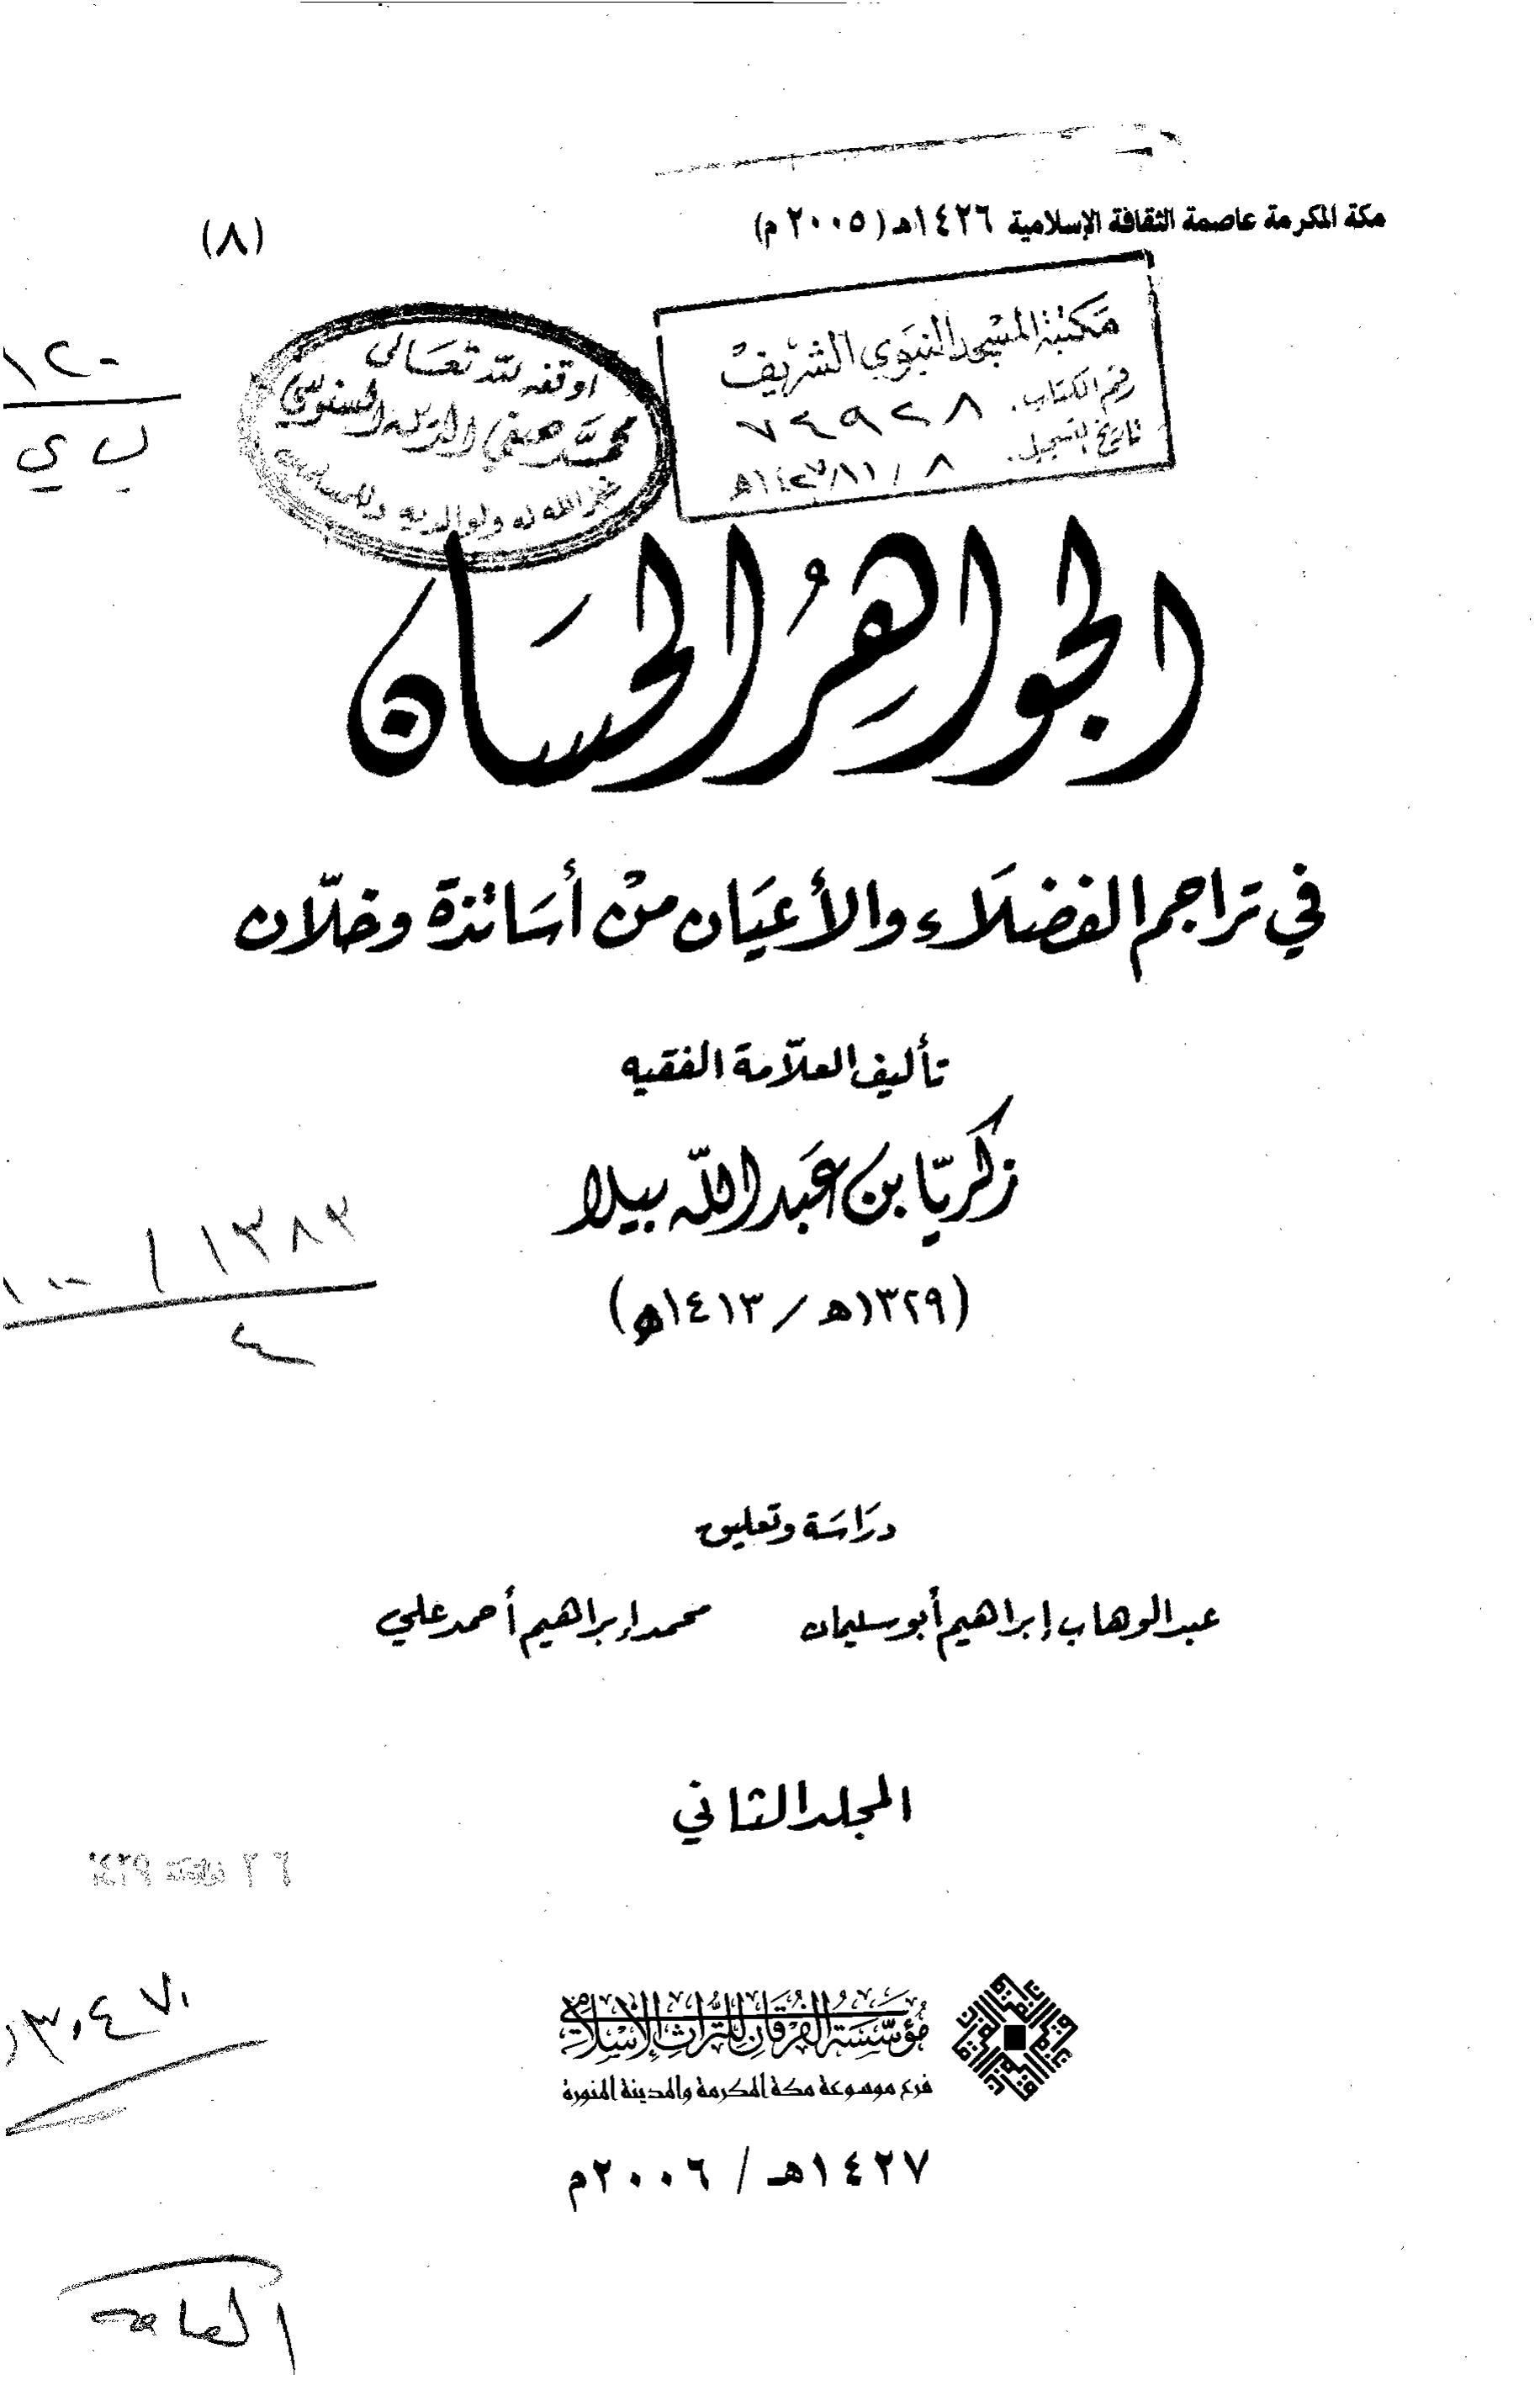 مكة المكرمة عاصمة الثقافة الإسلامية ١٤٢٦هـ (٢٠٠٥ م)
(٨)
مَكتبة المسْجد النبَوي الشريفْ
رقم الكتاب. ٧٤٩٢٨
تاريخ التسجيل. ٨ / ١٤٢٧/١١هـ
اوقفه لله تعَالى
محمَّد صفي الدين السنوسي
غفر الله له ولوالديه وللمسلمين
١٢٠
ب ي
الجواهرُ الحسَان
في تراجم الفضلَاء والأعيَان منْ أسَاتذة وخلّان
تأليف العلّامة الفقيه
زكريّا بن عَبد اللّه بيلا
(١٣٢٩هـ / ١٤١٣هـ)
١٣٨٣ / ١٠٠
٤
درَاسَة وتعليق
عبد الوهاب إبراهيم أبو سليمان    محمد إبراهيم أحمد علي
المجلد الثاني
٢٦ ١٤٢٩
مؤسَّسَة الفُرقان للتُّراث الإسْلامي
فرع موسوعة مكة المكرمة والمدينة المنورة
١٤٢٧هـ / ٢٠٠٦م
العامة